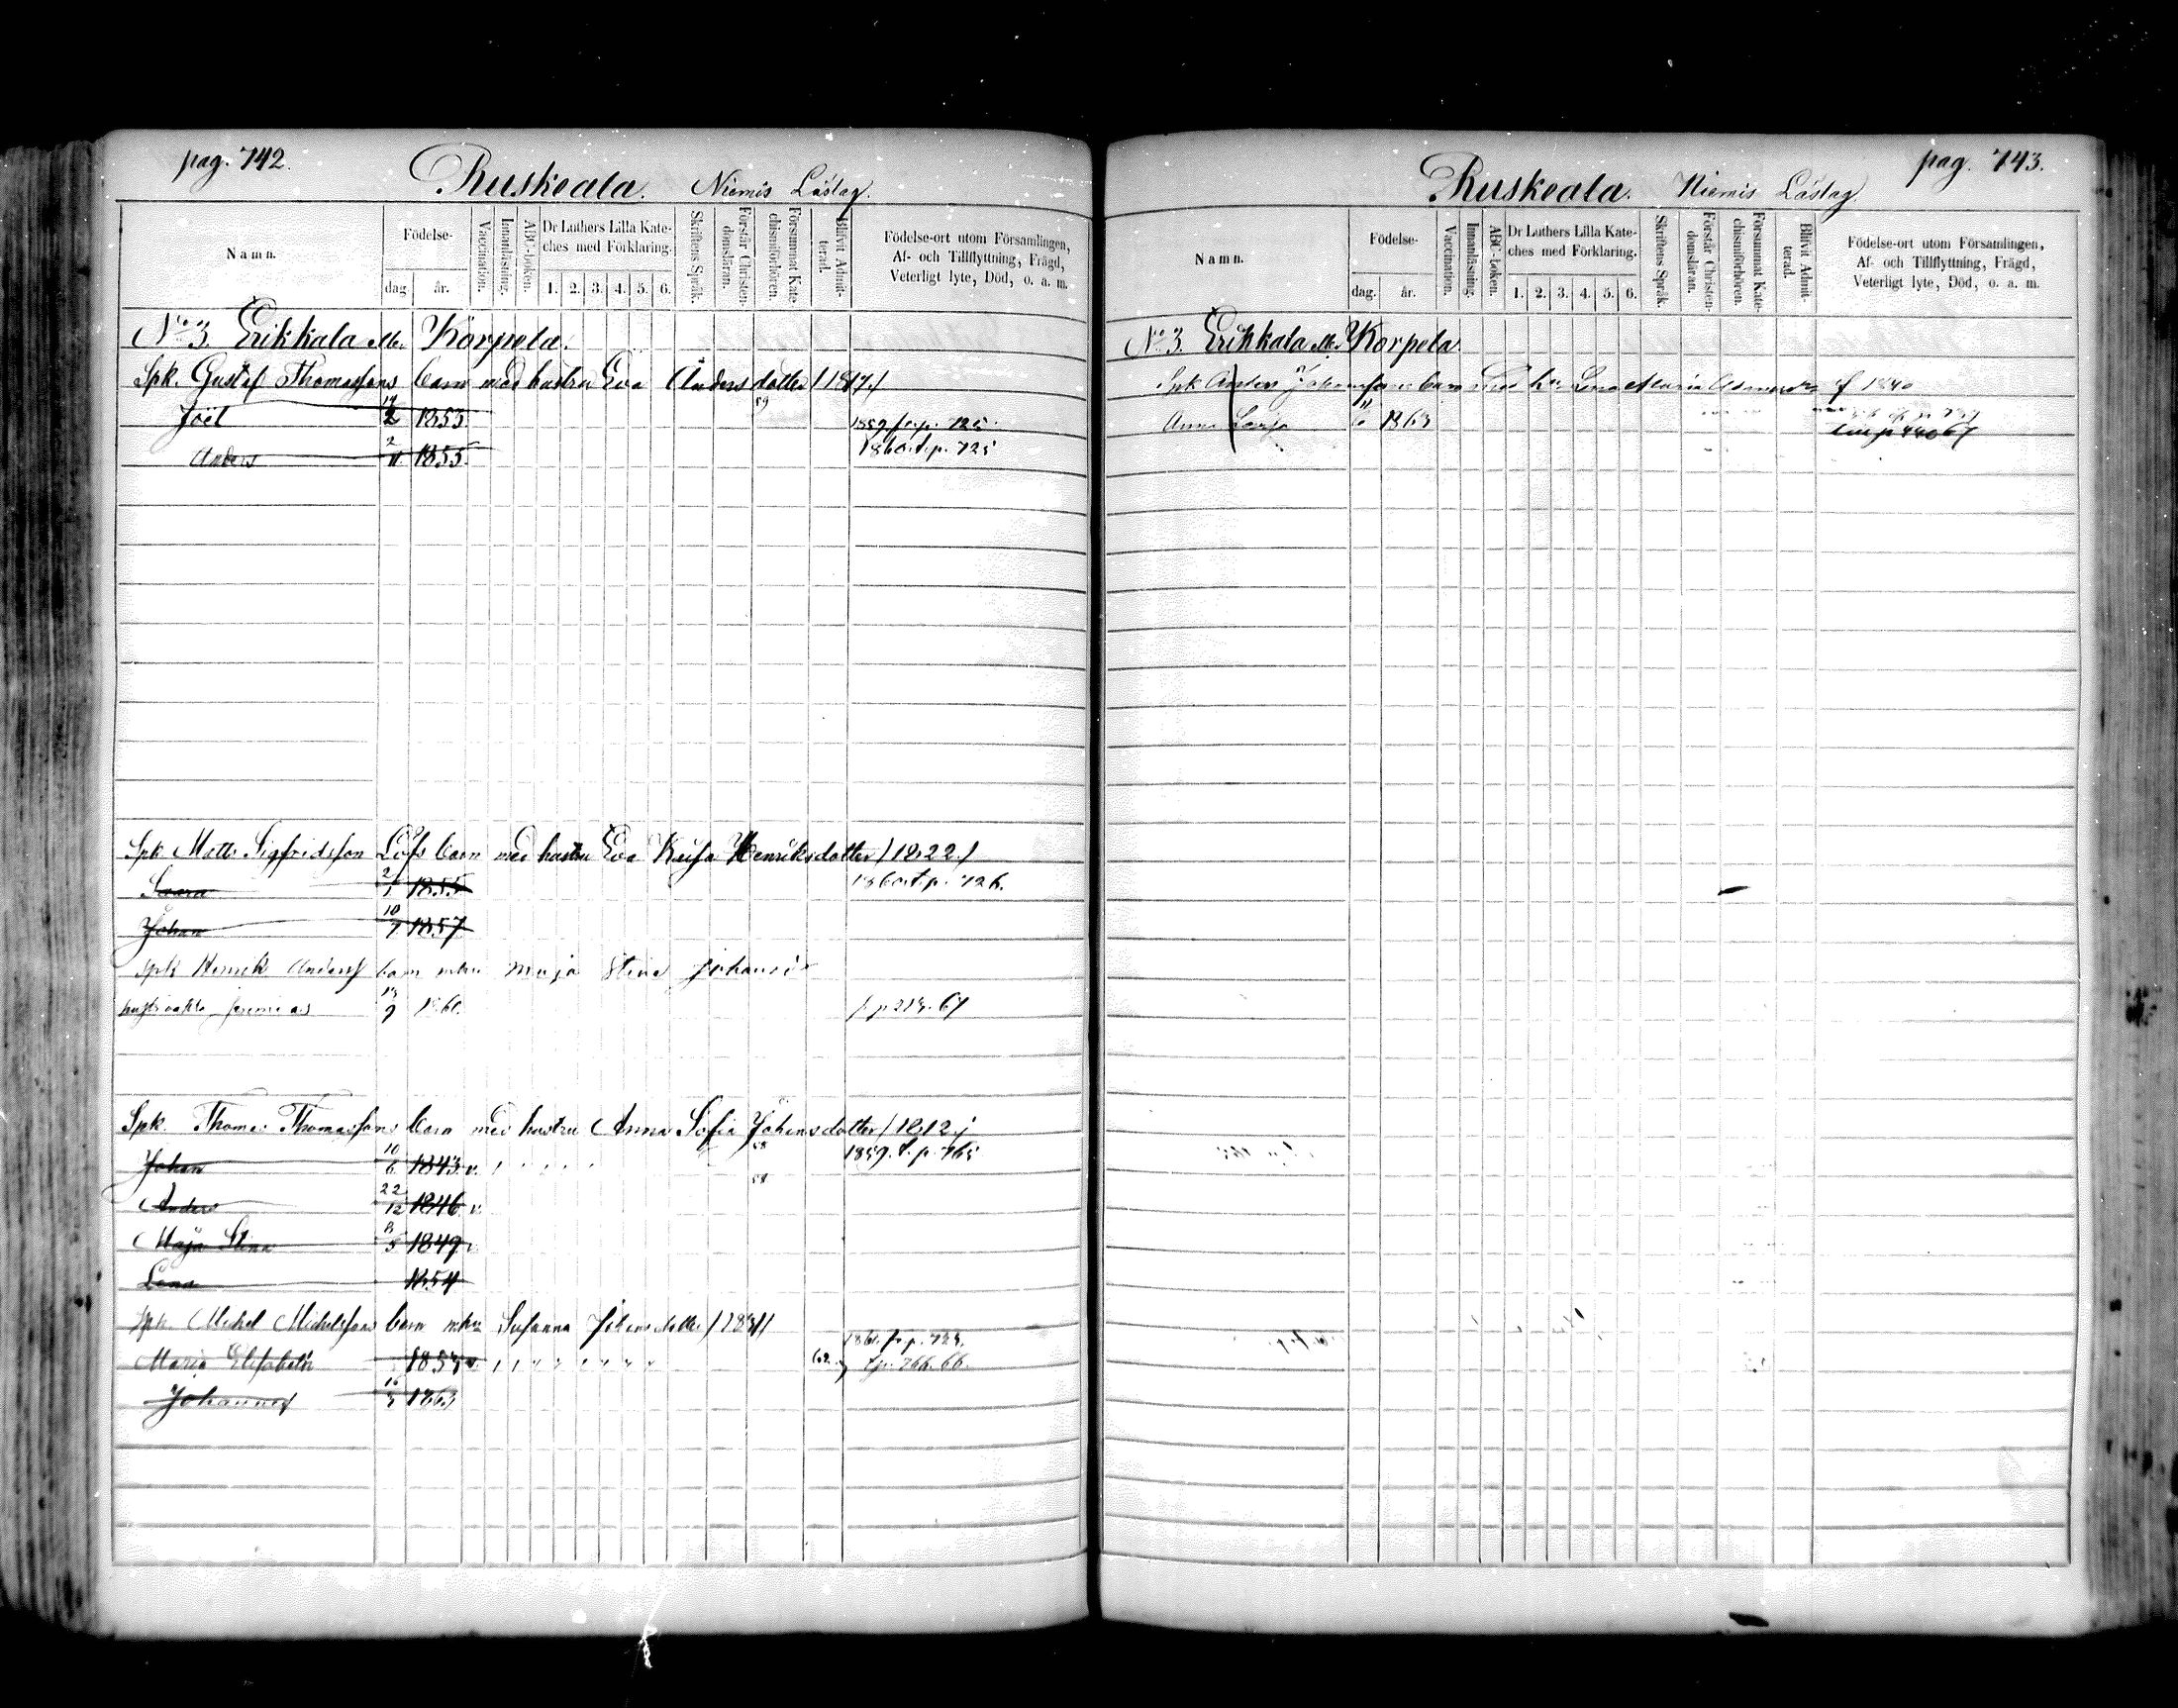 pag. 742.
Ruskeala. Niemis Läslag.
Namn.
Födelse-
dag.
år.
Vaccination.
Innanläsning.
ABC-boken.
Dr Luthers Lilla Kate-
ches med Förklaring.
1. 2. 3. 4. 5. 6.
Skriftens Språk.
Förstår Christen-
domsläran.
Försummat Kate-
chismiförhören.
Blifvit Admit-
terad.
Födelse-ort utom Församlingen,
Af- och Tillflyttning, Frägd,
Veterligt lyte, Död, o. a. m.
No 3. Erikkala Korpela.
Spk. Gustaf Thomassons barn med hustru Eva Andersdotter /1817./
Joël 1853. 59 1859 p. 725.
Anders 2/11 1855. 1860 t. p. 725
Spk. Matts Sigfridsson Löfs barn med hustru Eva Kaisa Henriksdotter /1822./
Saara 2/1 1855 1860 t. p. 726.
Johan 10/7 1857
Spk Henrik Anderss barn mhu Maja Stina Johansdr
Jeremias 13/9 1860. p 213. 67
Spk. Thomas Thomassons barn med hustru Anna Sofia Johansdotter /1812./
Johan 10/6 1843 v. 58 1859. t. p. 765
Anders 22/12 1846 v. 58
Maja Stina 8/5 1849 v.
Lena 1854
Spk. Mickel Mickelssons barn mhu Susanna Johansdotter /1831/
1861 fr p. 724.
Maria Elisabeth 1853 v. 62. t p. 766. 66.
Johannes 16/3 1863
pag. 743.
Ruskeala. Niemis Läslag
Namn.
Födelse-
dag.
år.
Vaccination.
Innanläsning.
ABC-boken.
Dr Luthers Lilla Kate-
ches med Förklaring.
1. 2. 3. 4. 5. 6.
Skriftens Språk.
Förstår Christen-
domsläran.
Försummat Kate-
chismiförhören.
Blifvit Admit-
terad.
Födelse-ort utom Församlingen,
Af- och Tillflyttning, Frägd,
Veterligt lyte, Död, o. a. m.
No 3. Erikkala Korpela.
Spk Anders Johanssons barn med hu Lena Maria f 1840
Anna 1863